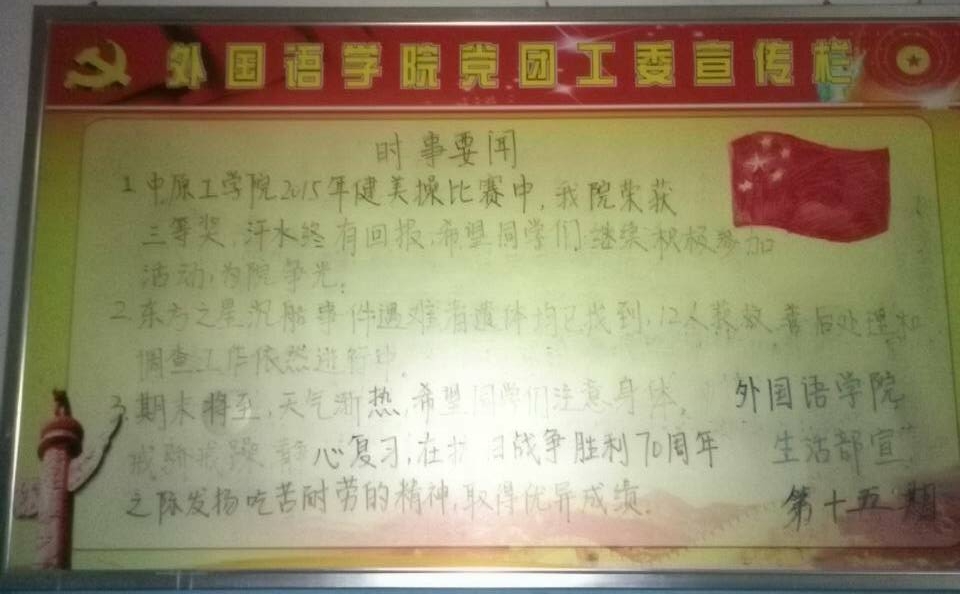 外国语学院党团工委宣传栏
时事要闻
1.中原工学院2015年健美操比赛中,我院荣获
三等奖,汗水终有回报,希望同学们继续积极参加
活动,为院争光;
2.东方之星沉船事件遇难者遗体均已找到,12人获救,善后处理和
调查工作依然进行中。
3.期末将至,天气渐热,希望同学们注意身体,
戒骄戒躁,心复习,在抗日战争胜利70周年
之际发扬吃苦耐劳的精神,取得优异成绩.
外国语学院
生活部宣
第十五期